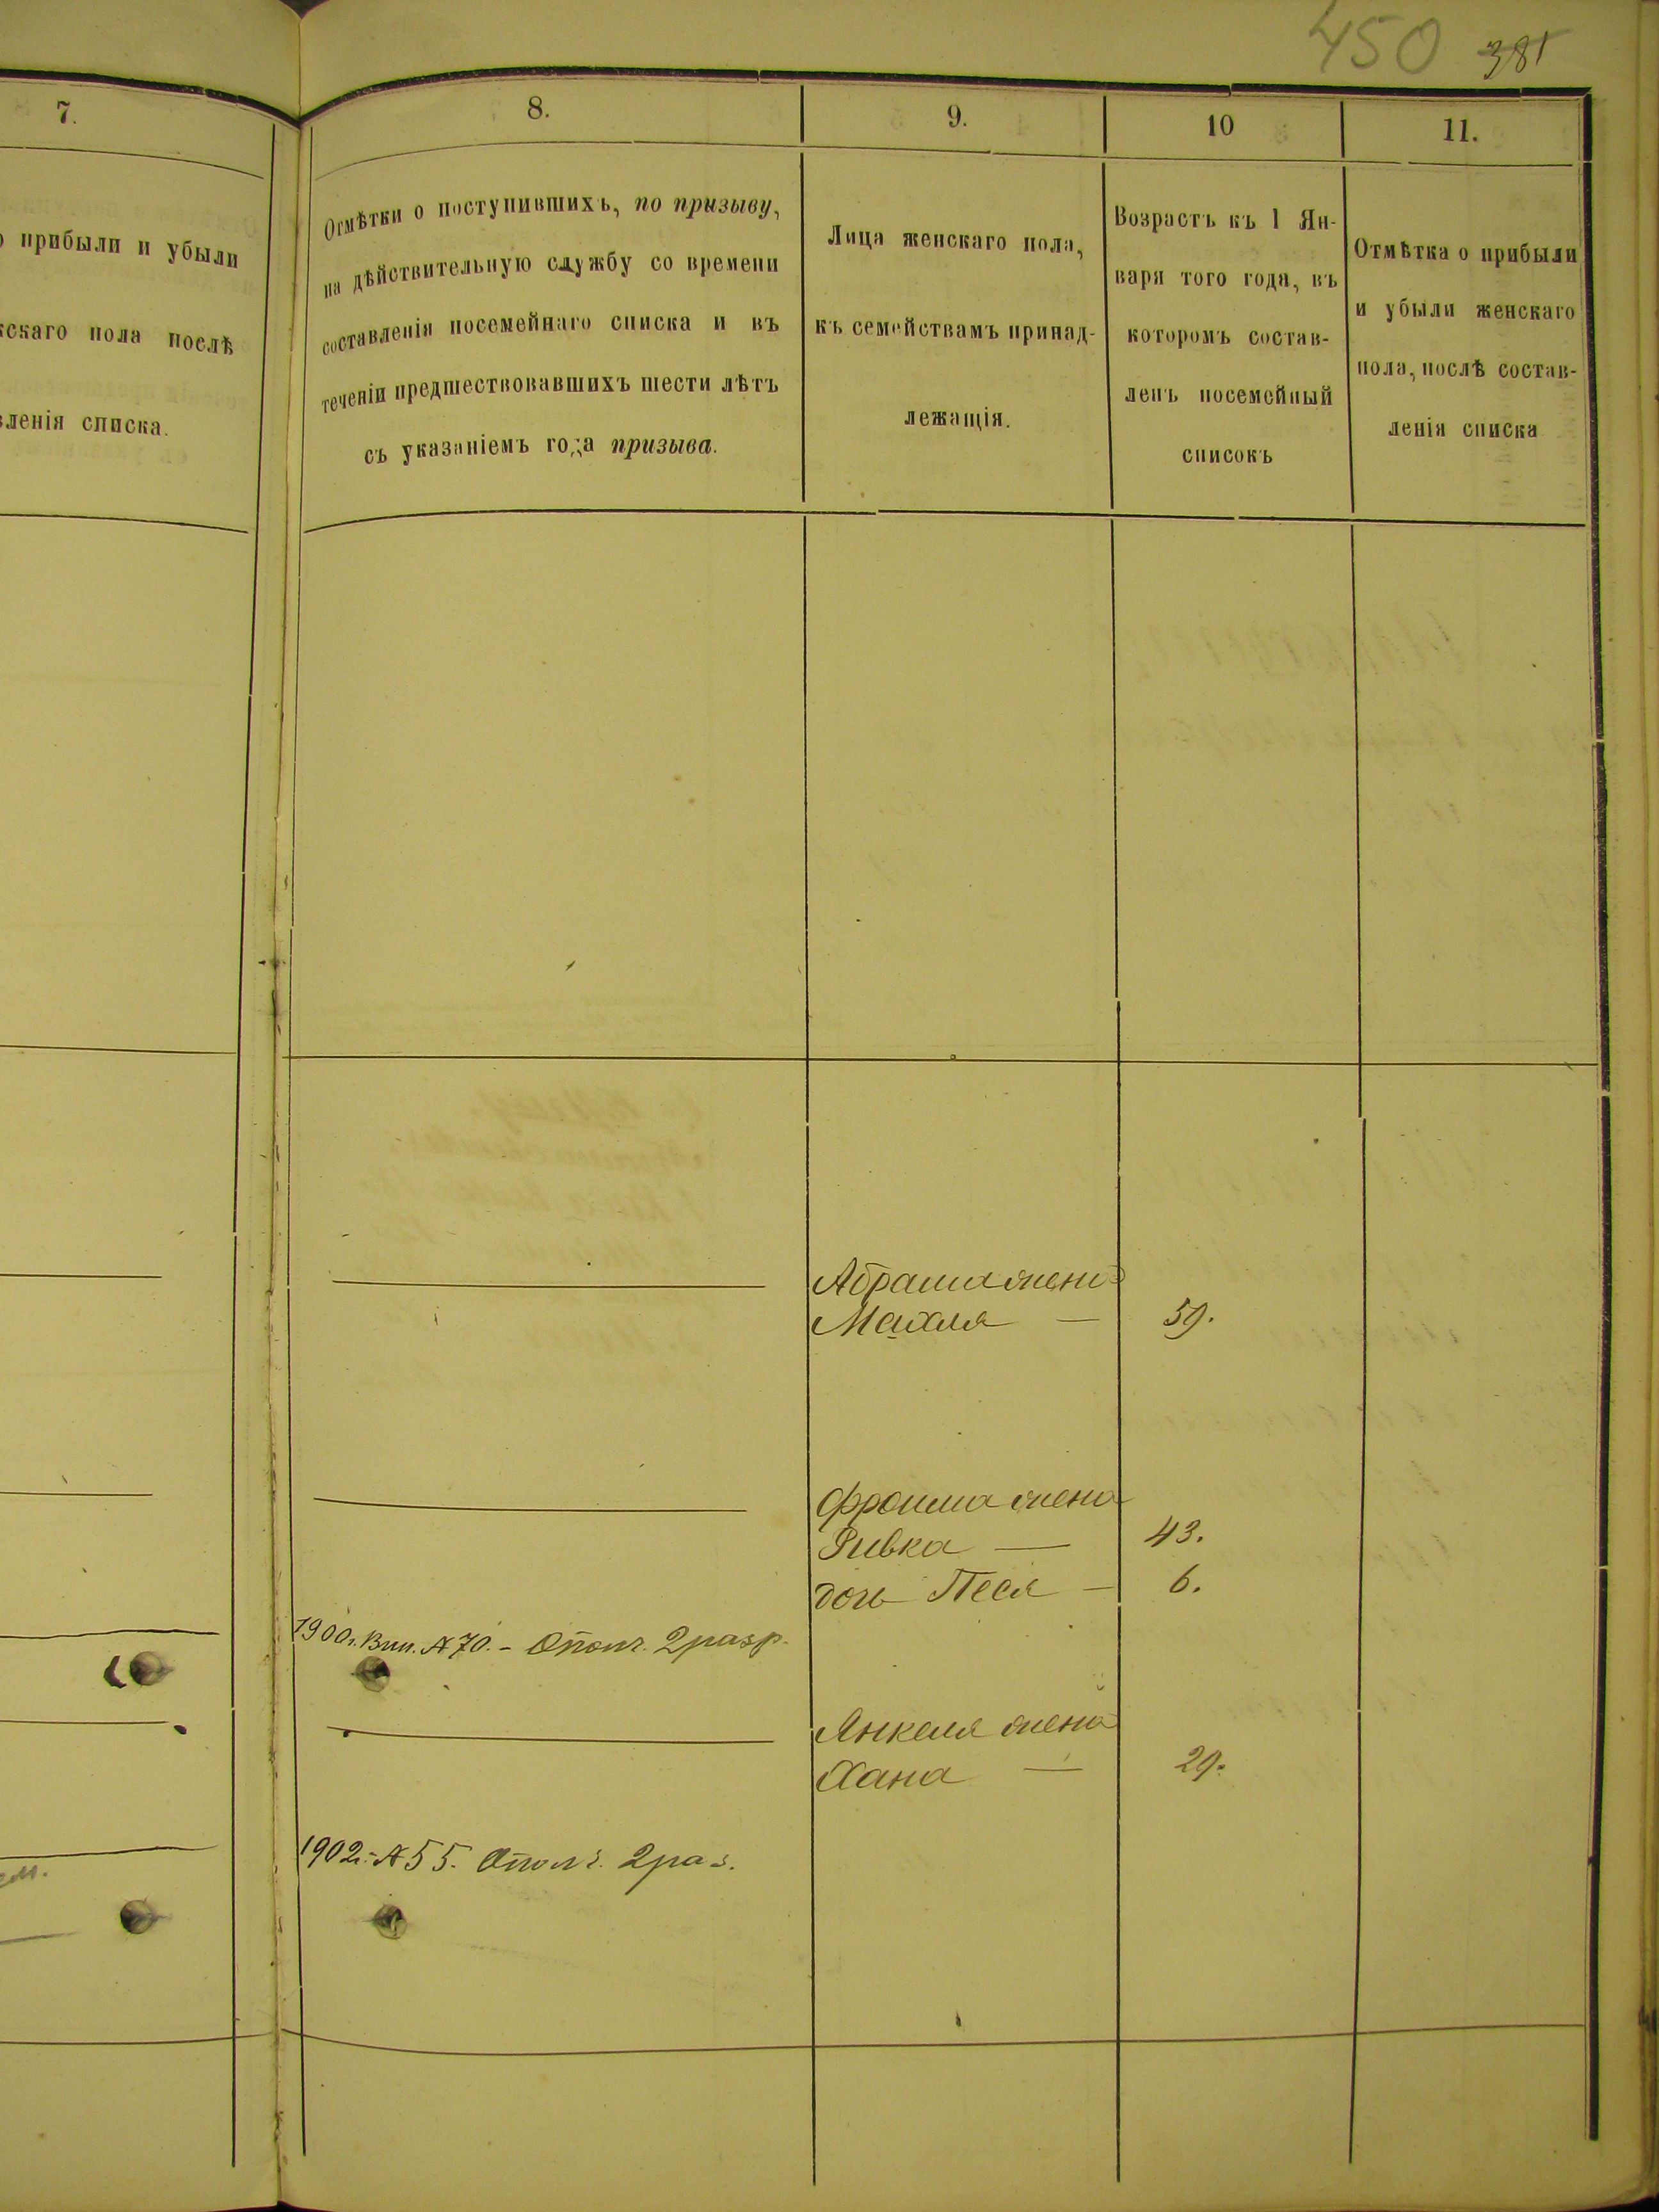 450 381
7.
о прибыли и убыли
жскаго пола послѣ
вленія списка.
8.
Отмѣтки о поступившихъ, по призыву,
на дѣйствительную службу со времени
составленія посемейнаго списка и въ
теченіи предшествовавшихъ шести лѣтъ
съ указаніемъ года призыва.
9.
Лица женскаго пола,
къ семействамъ принад-
лежащія.
10
Возрастъ къ 1 Ян-
варя того года, въ
которомъ состав-
ленъ посемейный
списокъ
11.
Отмѣтка о прибыли
и убыли женскаго
пола, послѣ состав-
ленія списка
Абрама жена
Махля — 59.
Фроима жена
Ривка — 43.
дочь Песя — 6.
1900г. Вып. № 70. - Ополч. 2 разр.
Янкеля жена
Хана — 29.
1902г. № 55. Ополч. 2 раз.